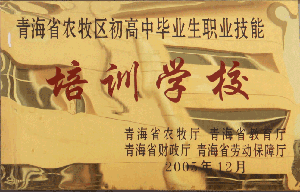 青海省农牧区初高中毕业生职业技能
培训学校
青海省农牧厅 青海省教育厅
青海省财政厅 青海省劳动保障厅
2005年12月